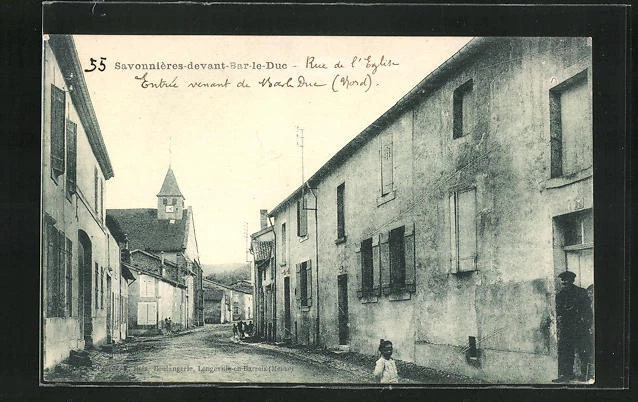 55 Savonnières-devant-Bar-le-Duc - Rue de l'Eglise
Entrée venant de Bar le Duc (Nord).
Boulangerie, Longeville-en-Barrois (Meuse)